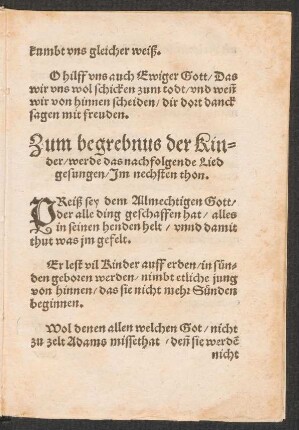 kumbt vns gleicher weiß.
O hilff vns auch Ewiger Gott/Das
wir vns wol schicken zum todt/vnd weñ
wir von hinnen scheiden/dir dort danck
sagen mit freuden.
Zum begrebnus der Kin-
der/werde das nachfolgende Lied
gesungen/Im nechsten thon.
PReiß sey dem Allmechtigen Gott/
der alle ding geschaffen hat/alles
in seinen henden helt/vnnd damit
thut was jm gefelt.
Er lest vil Kinder auff erden/in sün-
den geboren werden/nimbt etliche jung
von hinnen/das sie nicht mehr Sünden
beginnen.
Wol denen allen welchen Got/nicht
zu zelt Adams missethat/deñ sie werdē
nicht